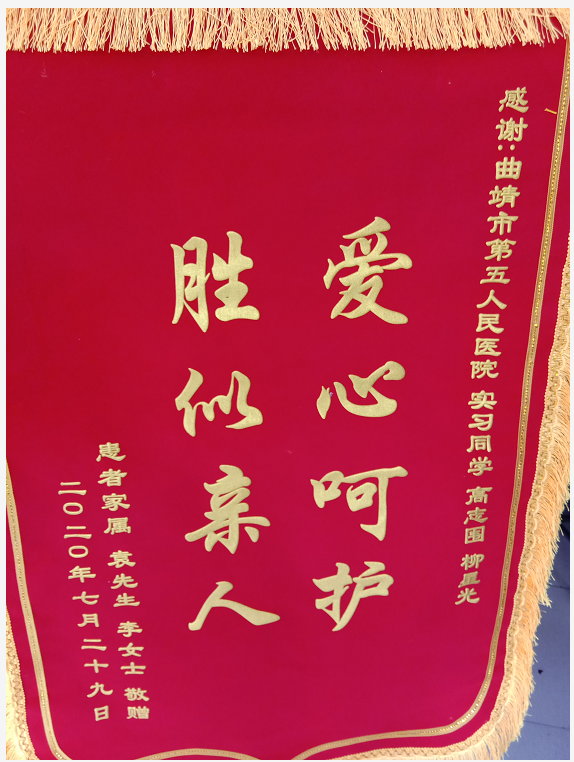 感谢:曲靖市第五人民医院 实习同学 高志国 柳星光
爱心呵护
胜似亲人
患者家属 袁先生 李女士 敬赠
二〇二〇年七月二十九日